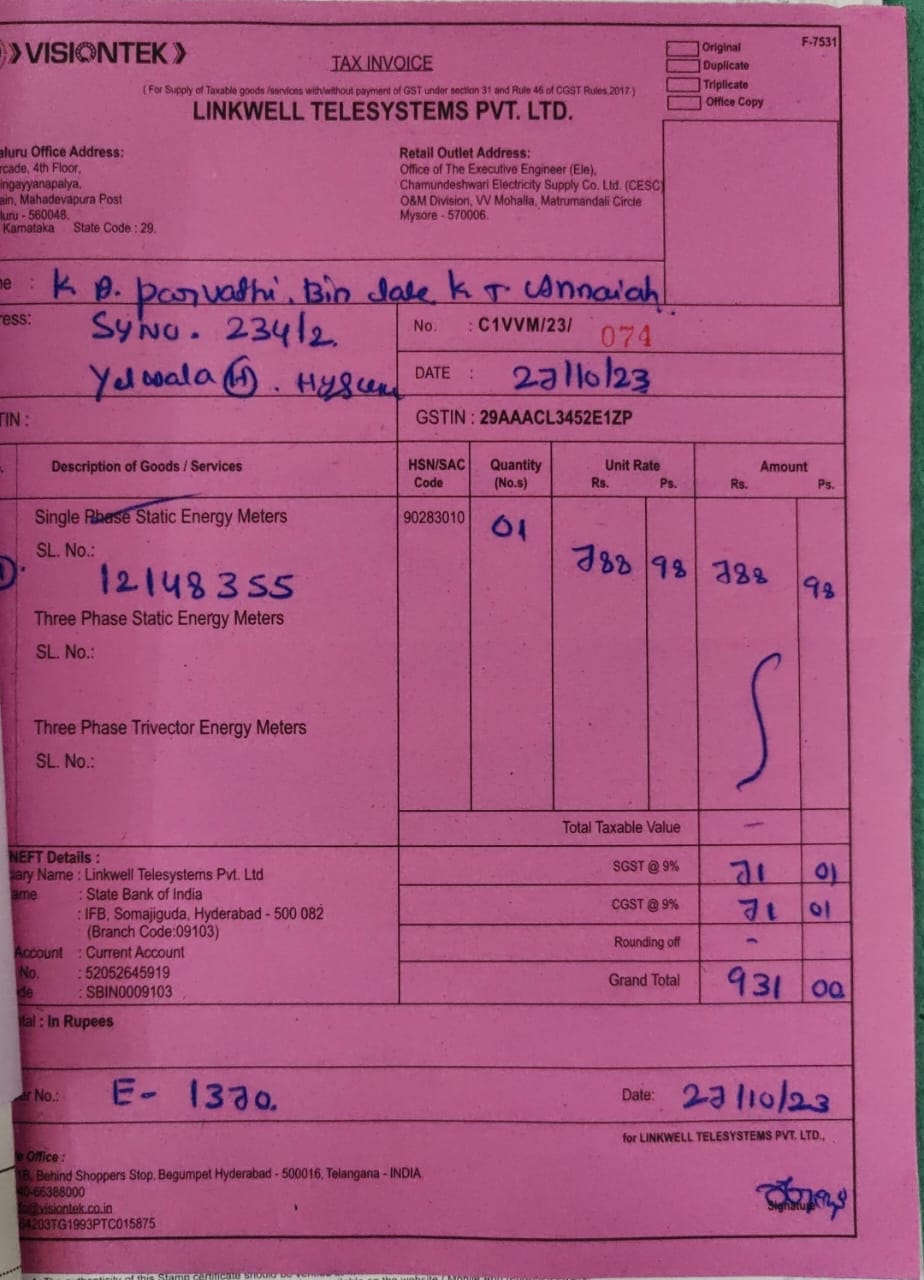 VISIONTEK
F-7531
TAX INVOICE
Original
Duplicate
Triplicate
Office Copy
( For Supply of Taxable goods /services with/without payment of GST under section 31 and Rule 46 of CGST Rules,2017 )
LINKWELL TELESYSTEMS PVT. LTD.
aluru Office Address:
rcade, 4th Floor,
ingayyanapalya,
ain, Mahadevapura Post
luru - 560048,
Karnataka State Code : 29.
Retail Outlet Address:
Office of The Executive Engineer (Ele),
Chamundeshwari Electricity Supply Co. Ltd. (CESC)
O&M Division, VV Mohalla, Matrumandali Circle
Mysore - 570006.
me : K B. parvathi. Bin late K T Annaiah
ress: SyNo. 234/2.
Yelwala (H).
No. : C1VVM/23/ 074
DATE : 27/10/23
TIN :
GSTIN : 29AAACL3452E1ZP
Description of Goods / Services HSN/SAC Code Quantity (No.s) Unit Rate Rs. Ps. Amount Rs. Ps.
Single Phase Static Energy Meters 90283010 01
SL. No.: 788 98 788 98
1). 12148355
Three Phase Static Energy Meters
SL. No.:
Three Phase Trivector Energy Meters
SL. No.:
Total Taxable Value -
SGST @ 9% 71 01
CGST @ 9% 71 01
Rounding off -
Grand Total 931 00
NEFT Details :
iary Name : Linkwell Telesystems Pvt. Ltd
ame : State Bank of India
: IFB, Somajiguda, Hyderabad - 500 082
(Branch Code:09103)
Account : Current Account
No. : 52052645919
de : SBIN0009103
tal : In Rupees
er No.: E- 1370. Date: 27/10/23
for LINKWELL TELESYSTEMS PVT. LTD.,
e Office :
1B, Behind Shoppers Stop, Begumpet Hyderabad - 500016, Telangana - INDIA
40-66388000
fo@visiontek.co.in
64203TG1993PTC015875
Signature